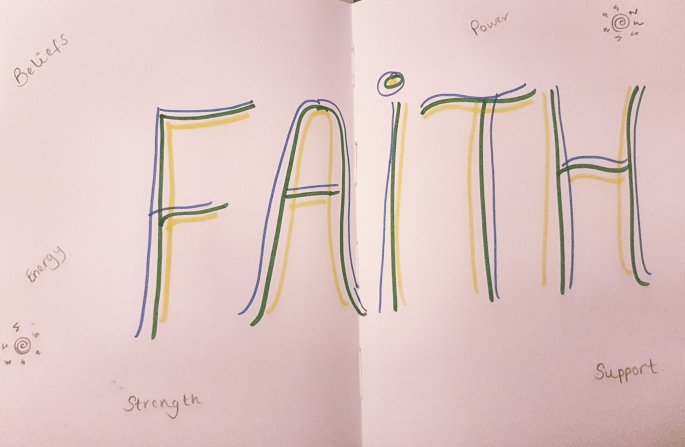 Beliefs
Power
FAiTH
Energy
Strength
Support